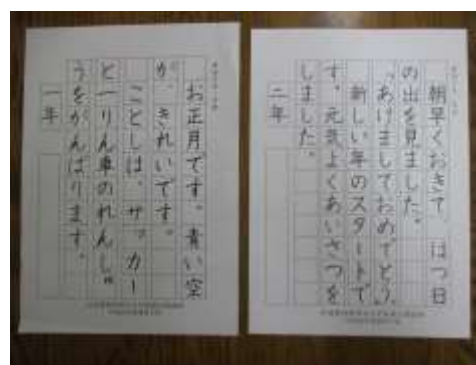 朝早くおきて、はつ日
の出を見ました。
「あけましておめでとう」
新しい年のスタートで
す。元気よくあいさつを
しました。
二年
お正月です。青い空
が、きれいです。
ことしは、サッカー
と一りん車のれんしゅ
うをがんばります。
一年